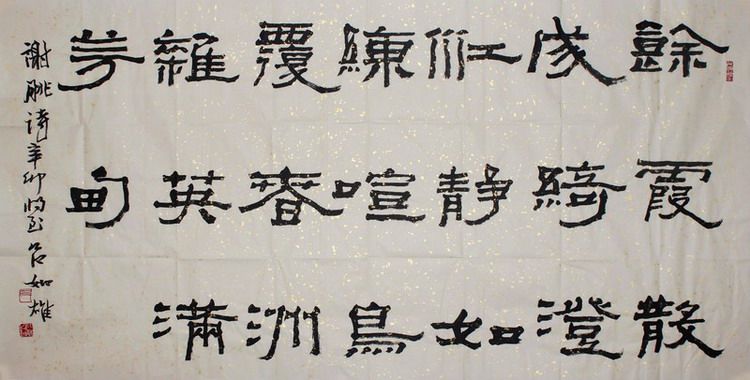 餘霞散
成綺澄
江静如
練喧鳥
覆春洲
雜英滿
芳甸
謝朓詩辛卯 如雄